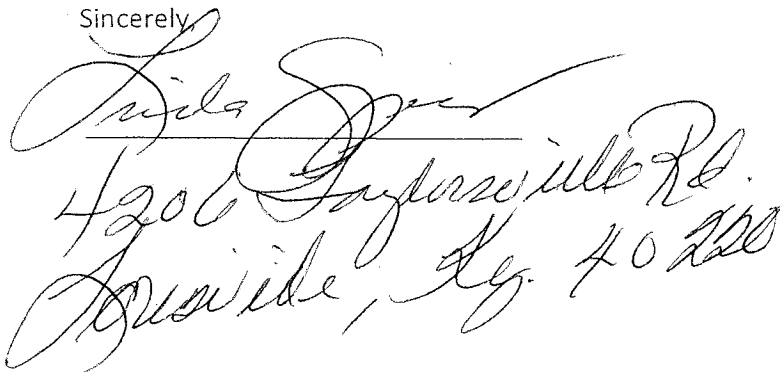 Sincerely
Linda
4206 Taylorsville Rd.
Louisville, Ky. 40220